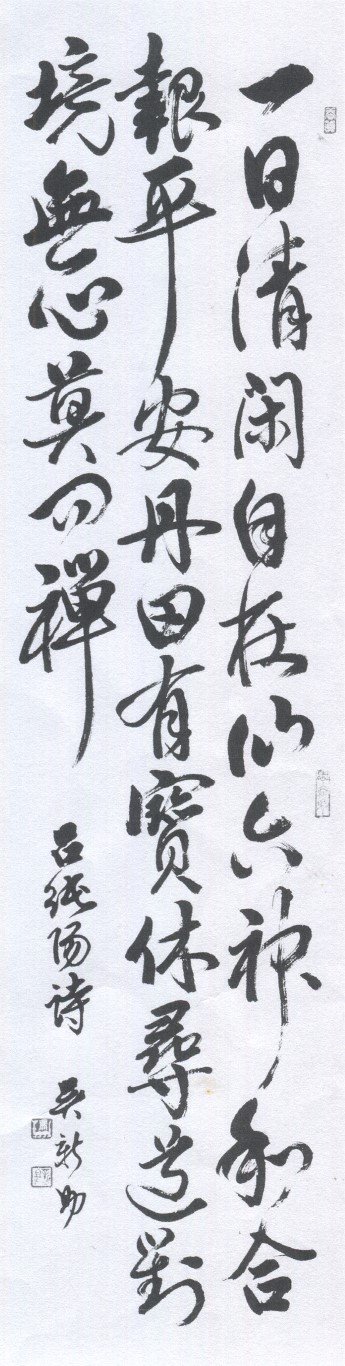 一日清閑自在仙六神和合
報平安丹田有寶休尋道對
境無心莫問禪
呂純陽詩 吴新助